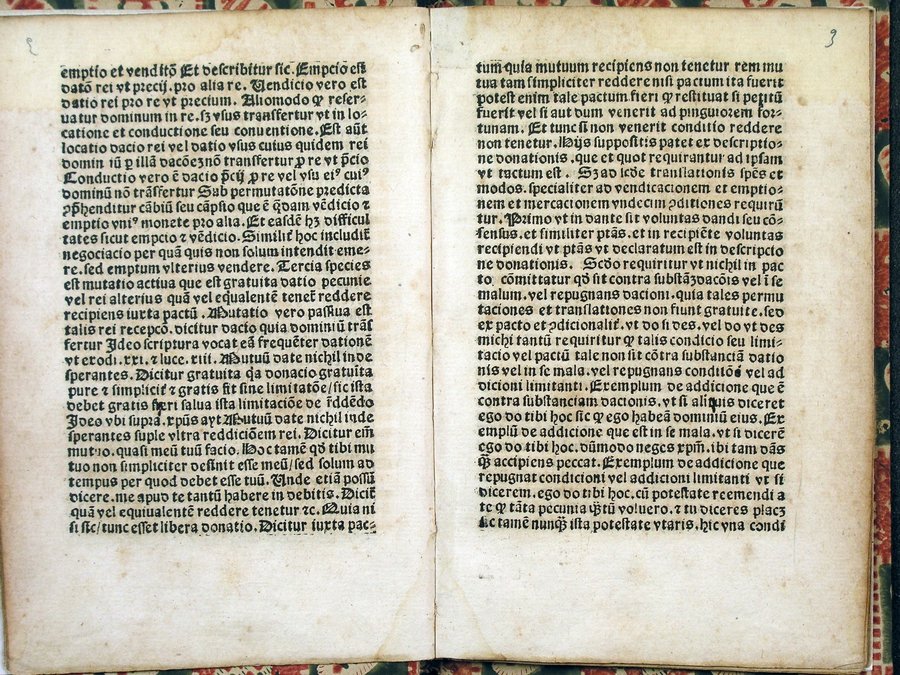 emptio et venditō Et describitur sic. Empcio est
datō rei vt precij. pro alia re. Uendicio vero est
datio rei pro re vt precium. Aliomodo ꝙ reser-
uatur dominum in re. sꝫ vsus transfertur vt in lo-
catione et conductione seu conuentione. Est aūt
locatio dacio rei vel datio vsus cuius quidem rei
domin iū ꝑ illā
Conductio vero ē dacio p̄cij ꝓ re vel vsu ei⁹ cui⁹
dominū nō trāsfertur Sub permutatōne predicta
ꝯp̄henditur cābiū seu cāpsio que ē q̄dam vēdicio ⁊
emptio vni⁹ monete pro alia. Et easdē hꝫ difficul
tates sicut empcio ⁊ vēdicio. Similit̄ hoc includit̄
negociacio per quā quis non solum intendit eme-
re. sed emptum vlterius vendere. Tercia species
est mutatio actiua que est gratuita datio pecunie
vel rei alterius quā vel equalentē tenet̄ reddere
recipiens iuxta pactū. Mutatio vero passiua est
talis rei recepcō. dicitur dacio quia dominiū trāſ
fertur Ideo scriptura vocat eā frequēter dationē
vt exodi. xxi. ⁊ luce. xiii. Mutuū date nichil inde
sperantes. Dicitur gratuita qꝛ donacio gratuita
pure ⁊ simplicit̄ ⁊ gratis fit sine limitatōe/sic ista
debet gratis fieri salua ista limitaciōe de r̄ddēdo
Ideo vbi supra. xp̄us ayt Mutuū date nichil inde
sperantes suple vltra reddiciōem rei. Dicitur em̄
mutuo. quasi meū tuū facio. Hoc tamē qđ tibi mu
tuo non simpliciter desinit esse meū/sed solum ad
tempus per quod debet esse tuū. Unde etiā possū
dicere. me apud te tantū habere in debitis. Dicit̄
quā vel equiualentē reddere tenetur ⁊c. Quia ni
si sic/tunc esset libera donatio. Dicitur iuxta pac-
tum quia mutuum recipiens non tenetur rem mu
tuatam simpliciter reddere nisi pactum ita fuerit
potest enim tale pactum fieri ꝙ restituat si petitū
fuerit vel si aut dum venerit ad pinguiorem for-
tunam. Et tunc si non venerit conditio reddere
non tenetur. Hijs suppositis patet ex descriptio-
ne donationis. que et quot requirantur ad ipsam
vt tactum est. Sꝫ ad translationis sp̄es et
modos. specialiter ad vendicacionem et emptio-
nem et mercacionem vndecim ꝯditiones requirū
tur. Primo vt in dante sit voluntas dandi seu cō-
sensus. et similiter ptās. et in recipiēte voluntas
recipiendi vt ptās vt declaratum est in descripcio
ne donationis. Scđo requiritur vt nichil in pac
to cōmittatur qđ sit contra substāꝫ dacōis vel ī se
malum. vel repugnans dacioni. quia tales permu
taciones et translationes non fiunt gratuite. sed
ex pacto et ꝯdicionalit̄. vt do si des. vel do vt des
michi tantū requiritur ꝙ talis condicio seu limi-
tacio vel pactū tale non sit cōtra substanciā datio
nis vel in se mala. vel repugnans conditōi vel ad
dicioni limitanti. Exemplum de addicione que ē
contra substanciam dacionis. vt si aliquis diceret
ego do tibi hoc sic ꝙ ego habeā dominiū eius. Ex
emplū de addicione que est in se mala. vt si dicerē
ego do tibi hoc. dūmodo neges xp̄m. ibi tam dās
ꝙ accipiens peccat. Exemplum de addicione que
repugnat condicioni vel addicioni limitanti vt si
dicerem. ego do tibi hoc. cū potestate reemendi a
te ꝙ tāta pecunia q̄tū voluero. ⁊ tu diceres placꝫ
sic tamē nunꝙ̄ ista potestate vtaris. hic vna condi